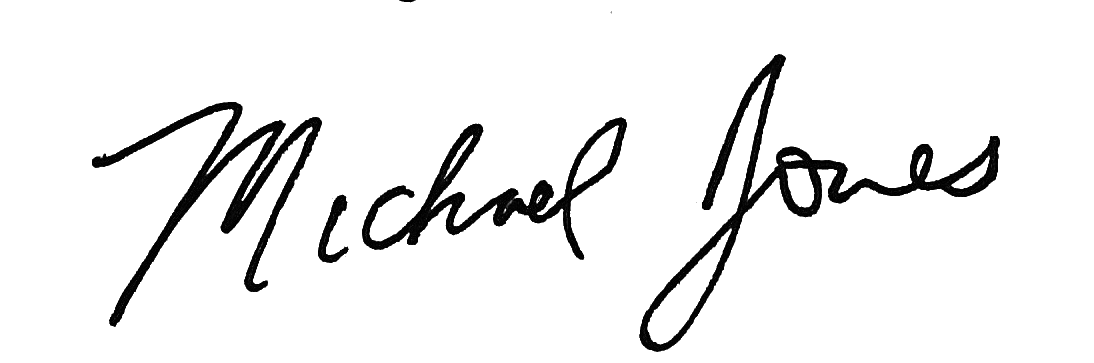 Michael Jones